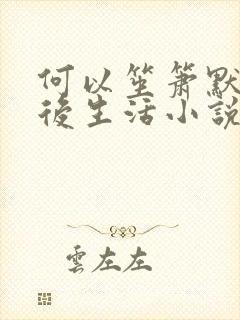 何以笙簫默
後生活小說
雲左左